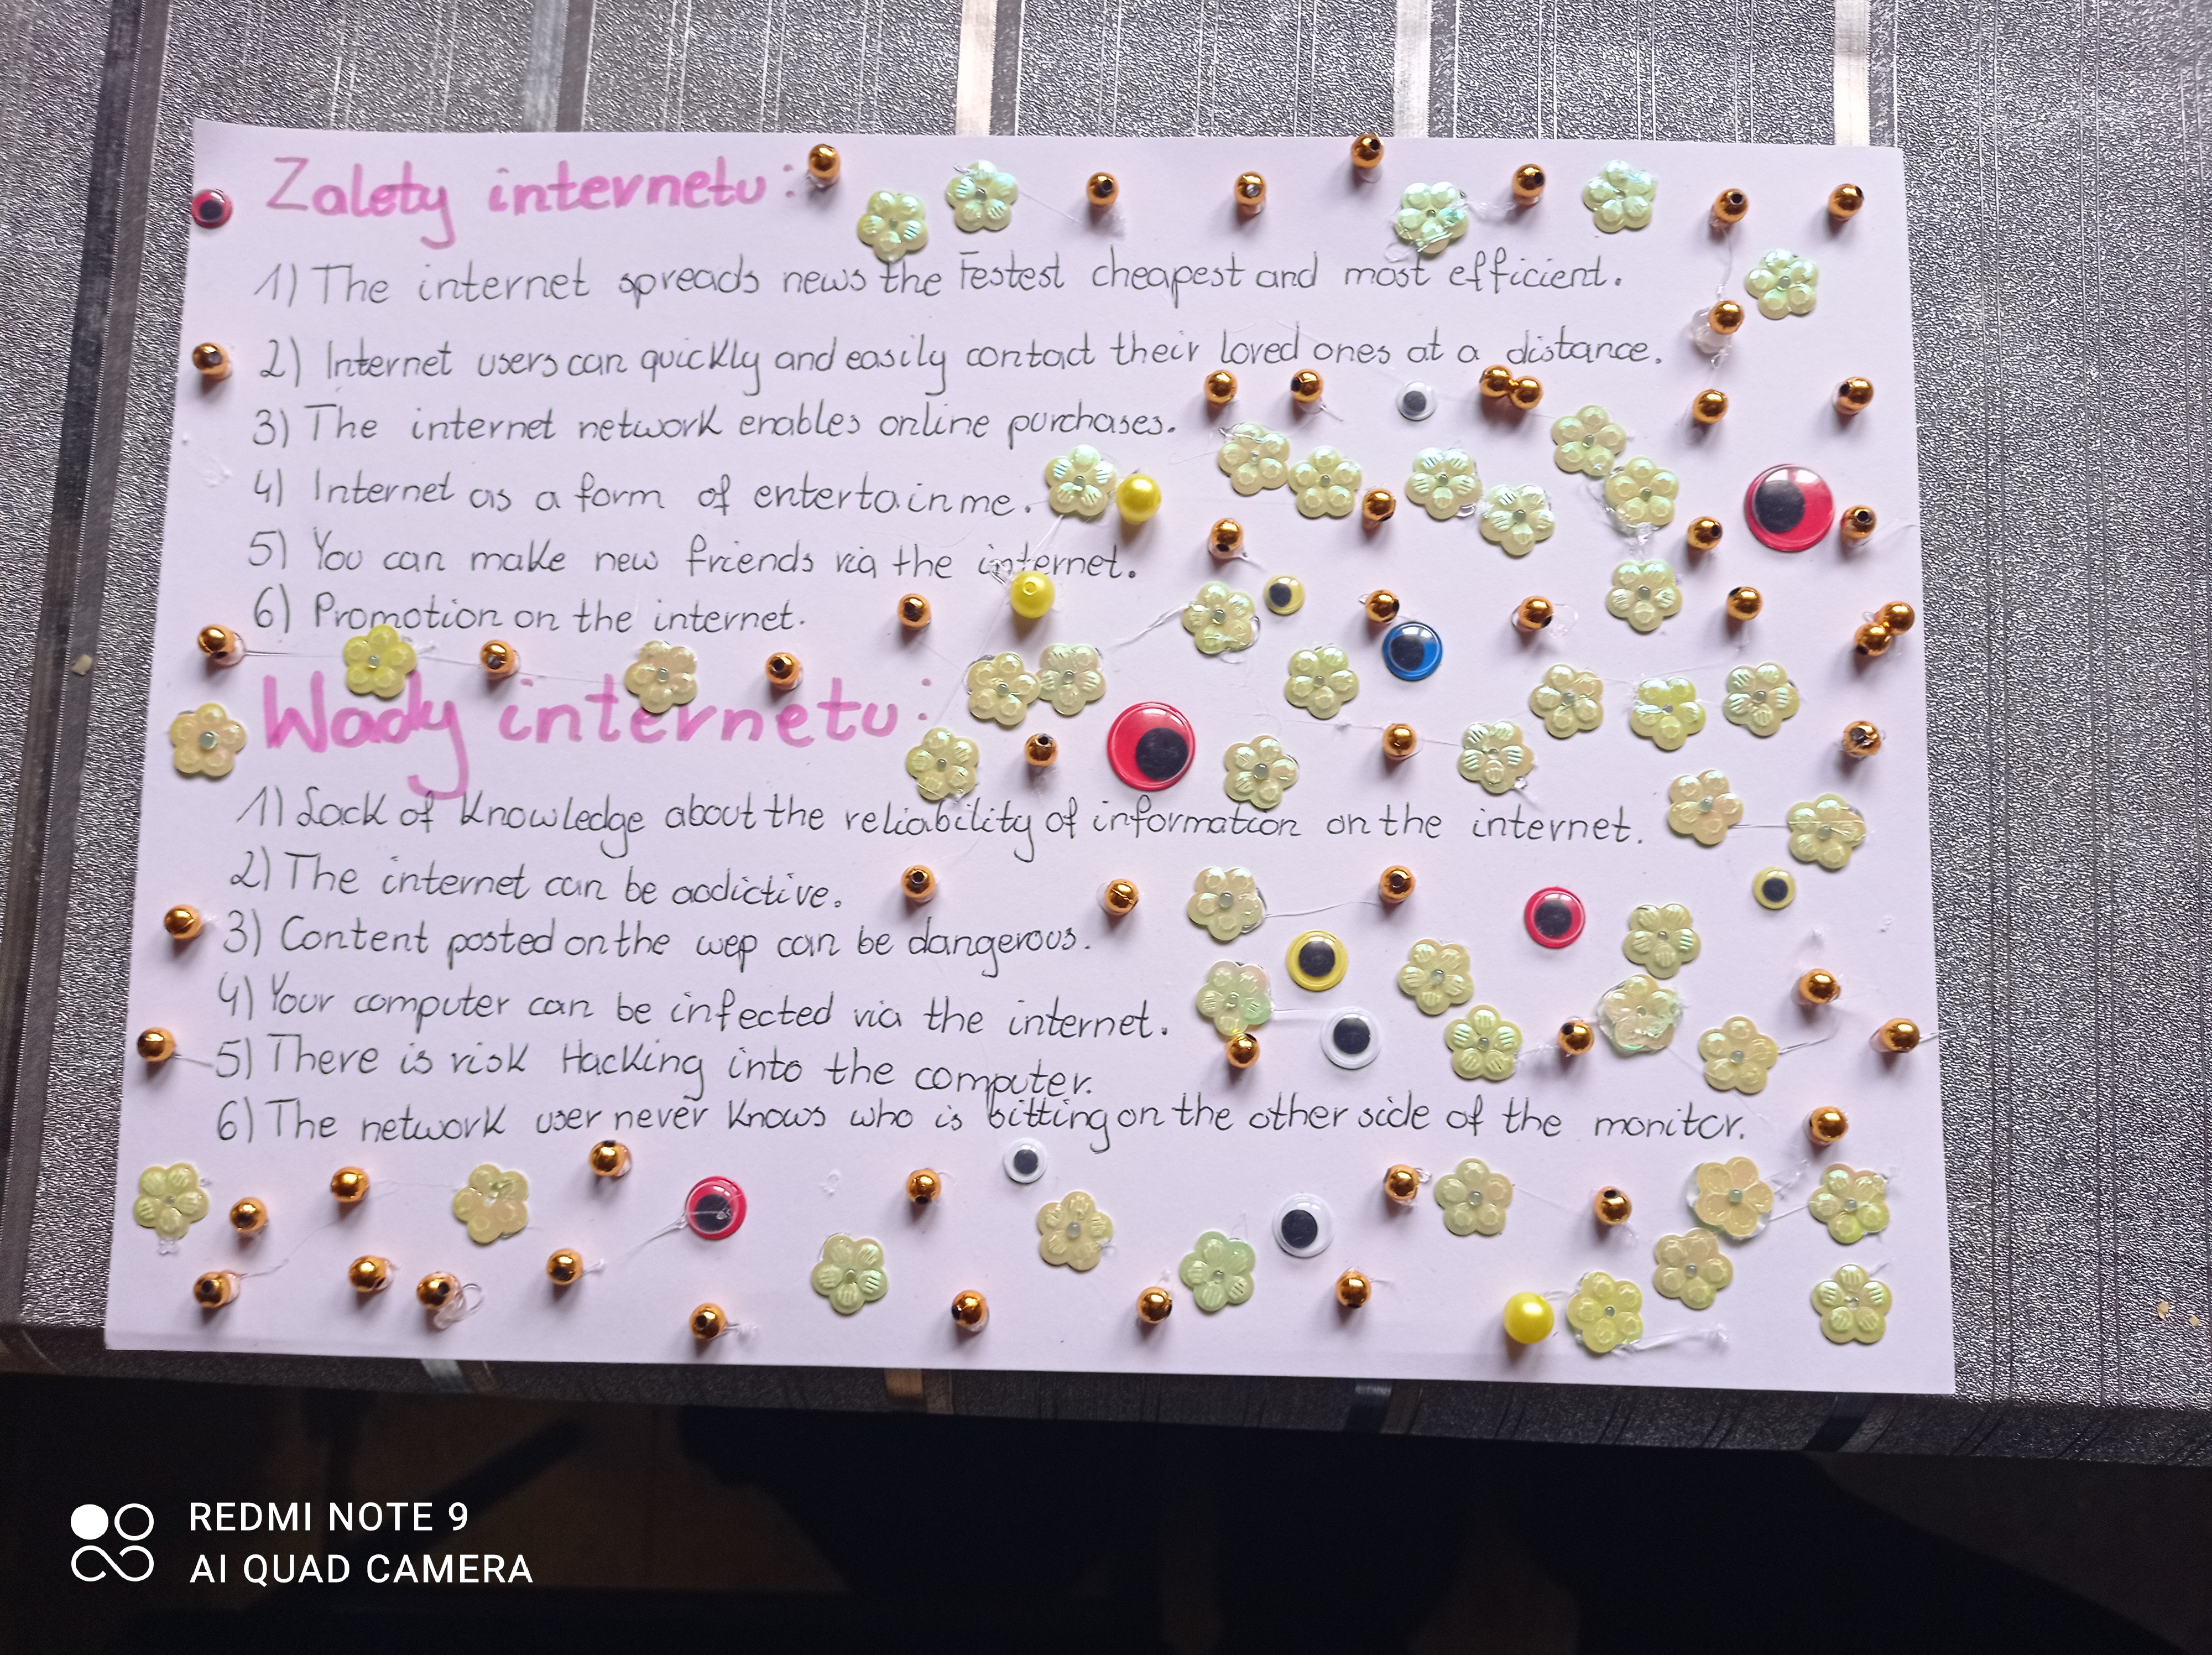 Zalety internetu:
1) The internet spreads news the Festest cheapest and most efficient.
2) Internet users can quickly and easily contact their loved ones at a distance.
3) The internet network enables online purchases.
4) Internet as a form of entertainme.
5) You can make new friends via the internet.
6) Promotion on the internet.
Wady internetu:
1) Lack of knowledge about the reliability of information on the internet.
2) The internet can be addictive.
3) Content posted on the wep can be dangerous.
4) Your computer can be infected via the internet.
5) There is risk Hacking into the computer.
6) The network user never knows who is sitting on the other side of the monitor.
REDMI NOTE 9
AI QUAD CAMERA